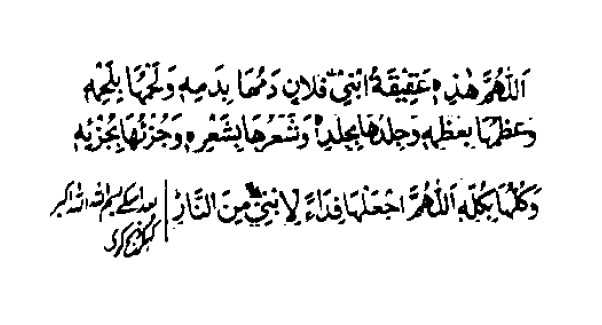 اَللّٰهُمَّ هٰذِهٖ عَقِيْقَةُ ابْنِىْ فُلَانٍ دَمُهَا بِدَمِهٖ وَلَحْمُهَا بِلَحْمِهٖ
وَعَظْمُهَا بِعَظْمِهٖ وَجِلْدُهَا بِجِلْدِهٖ وَشَعْرُهَا بِشَعْرِهٖ وَجُزْئُهَا بِجُزْئِهٖ
وَكُلُّهَا بِكُلِّهٖ اَللّٰهُمَّ اجْعَلْهَا فِدَاءً لِابْنِىْ مِنَ النَّارِ
بعد اسکے بسم اللہ اللہ اکبر
کہکر ذبح کرے